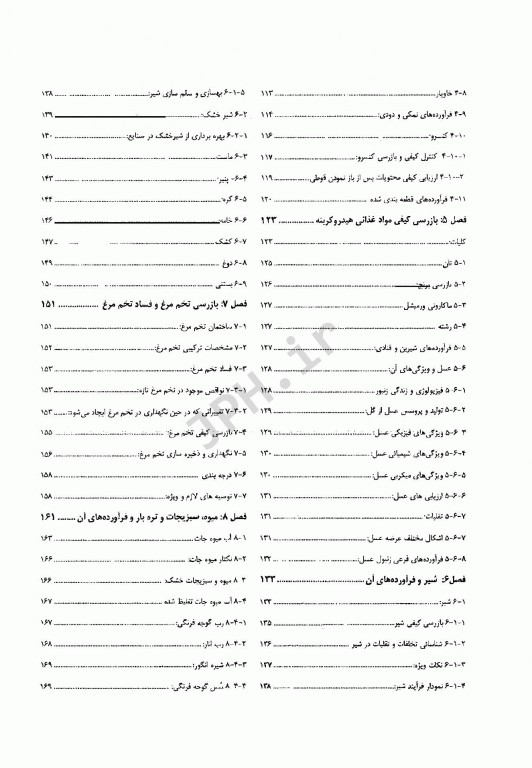 ۴-۸ خاویار ۱۱۳
۴-۹ فرآورده‌های نمکی و دودی: ۱۱۴
۴-۱۰ کنسرو: ۱۱۶
۴-۱۰-۱ کنترل کیفی و بازرسی کنسرو: ۱۱۷
۴-۱۰-۲ ارزیابی کیفی محتویات پس از باز نمودن قوطی ۱۱۹
۴-۱۱ فرآورده‌های قطعه بندی شده ۱۲۰
فصل ۵: بازرسی کیفی مواد غذائی هیدروکربنه ۱۲۳
کلیات: ۱۲۳
۵-۱ نان ۱۲۵
۵-۲ بازرسی برنج: ۱۲۶
۵-۳ ماکارونی ورمیشل ۱۲۷
۵-۴ رشته ۱۲۷
۵-۵ فرآورده‌های شیرین و قنادی: ۱۲۷
۵-۶ عسل و ویژگی‌های آن: ۱۲۸
۵-۶-۱ فیزیولوژی و زندگی زنبور ۱۲۸
۵-۶-۲ تولید و پروسس عسل از گل: ۱۲۹
۵-۶-۳ ویژگی‌های فیزیکی عسل: ۱۲۹
۵-۶-۴ ویژگی‌های شیمیائی عسل: ۱۳۰
۵-۶-۵ ویژگی‌های میکربی عسل: ۱۳۰
۵-۶-۶ ارزیابی های عسل: ۱۳۱
۵-۶-۷ تقلبات: ۱۳۱
۵-۶-۷ اشکال مختلف عرضه عسل: ۱۳۱
۵-۶-۸ فرآورده‌های فرعی زنبول عسل: ۱۳۲
فصل۶: شیر و فرآورده‌های آن ۱۳۳
۶-۱ شیر: ۱۳۳
۶-۱-۱ بازرسی کیفی شیر ۱۳۵
۶-۱-۲ شناسائی تخلفات و تقلبات در شیر ۱۳۶
۶-۱-۳ نکات ویژه: ۱۳۷
۶-۱-۴ نمودار فرآیند شیر: ۱۳۸
۶-۱-۵ بهسازی و سالم سازی شیر: ۱۳۸
۶-۲ شیر خشک: ۱۳۹
۶-۲-۱ بهره برداری از شیرخشک در صنایع: ۱۴۰
۶-۳ ماست ۱۴۱
۶-۴- پنیر: ۱۴۳
۶-۵ کره: ۱۴۴
۶-۶ خامه: ۱۴۶
۶-۷ کشک ۱۴۷
۶-۸ دوغ ۱۴۹
۶-۹ بستنی ۱۵۰
فصل ۷: بازرسی تخم مرغ و فساد تخم مرغ ۱۵۱
۷-۱ ساختمان تخم مرغ: ۱۵۱
۷-۲ مشخصات ترکیبی تخم مرغ: ۱۵۲
۷-۳ فساد تخم مرغ: ۱۵۳
۷-۳-۱ نواقص موجود در تخم مرغ تازه: ۱۵۳
۷-۳-۲ تغییراتی که در حین نگهداری در تخم مرغ ایجاد می‌شود: ۱۵۳
۷-۴ بازرسی کیفی تخم مرغ: ۱۵۵
۷-۵ نگهداری و ذخیره سازی تخم مرغ: ۱۵۶
۷-۶ درجه بندی ۱۵۸
۷-۷ توصیه های لازم و ویژه: ۱۵۸
فصل ۸: میوه، سبزیجات و تره بار و فرآورده‌های آن ۱۶۱
۸-۱ آب میوه جات ۱۶۳
۸-۲ نکتار میوه جات: ۱۶۶
۸-۳ میوه و سبزیجات خشک: ۱۶۶
۸-۴ آب میوه جات تغلیظ شده ۱۶۷
۸-۴-۱ رب گوجه فرنگی: ۱۶۷
۸-۴-۲ رب انار: ۱۶۸
۸-۴-۳ شیره انگور: ۱۶۹
۸-۴-۴ سُس گوجه فرنگی: ۱۶۹
3PH.ir